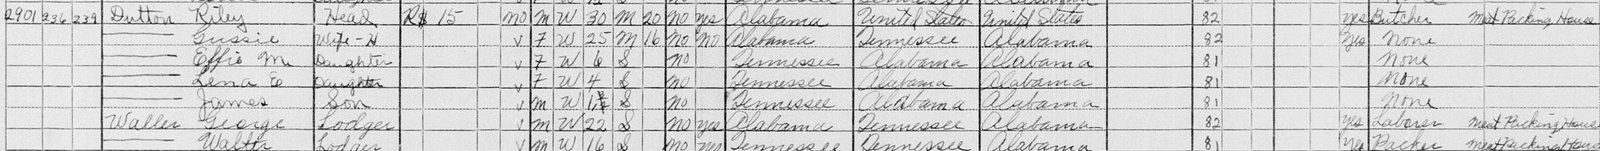 2901 236 239 Dutton Riley Head R 15 no M W 30 M 20 no yes Alabama United States United States 82 yes Butcher Meat Packing House
Gussie Wife-H V F W 25 M 16 no no Alabama Tennessee Alabama 82 yes None
Effie M Daughter V F W 6 S no Tennessee Alabama Alabama 81 None
Lena E Daughter V F W 4 S no Tennessee Alabama Alabama 81 None
James Son V M W S no Tennessee Alabama Alabama 81 None
Waller George Lodger V M W 22 S no yes Alabama Tennessee Alabama 82 yes Laborer Meat Packing House
Walter Lodger V M W 16 S no yes Tennessee Tennessee Alabama 81 yes Packer Meat Packing House